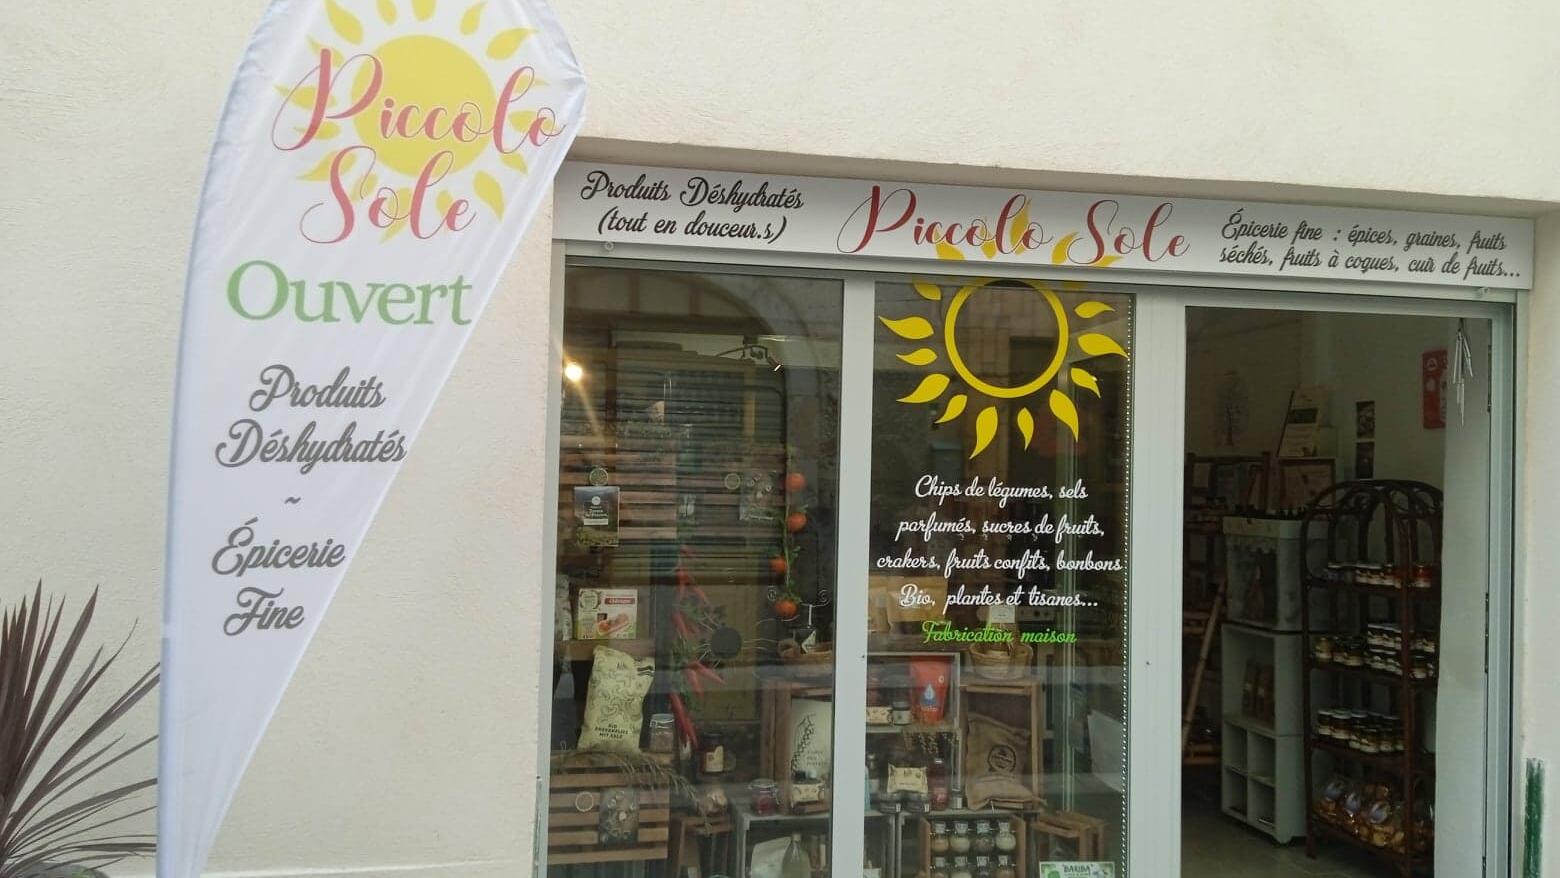 Piccolo
Sole
Ouvert
Produits
Déshydratés
~
Épicerie
Fine
Produits Déshydratés
(tout en douceur.s)
Piccolo Sole
Épicerie fine : épices, graines, fruits
séchés, fruits à coques, cuir de fruits...
Chips de légumes, sels
parfumés, sucres de fruits,
crakers, fruits confits, bonbons
Bio, plantes et tisanes...
Fabrication maison